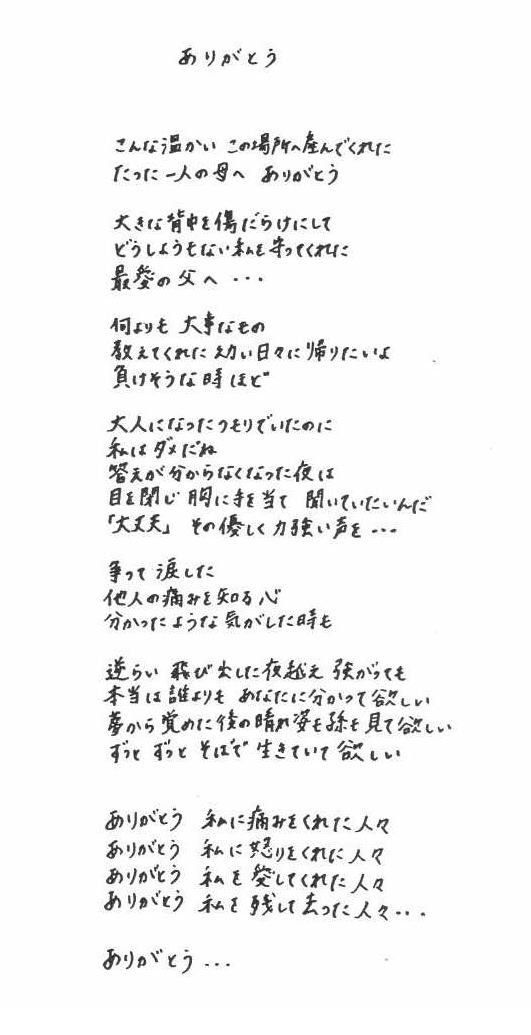 ありがとう
こんな温かい この場所へ産んでくれた
たった一人の母へ ありがとう
大きな背中を傷だらけにして
どうしようもない私を守ってくれた
最愛の父へ ・・・
何よりも 大事なもの
教えてくれた 幼い日々に 帰りたいよ
負けそうな時ほど
大人になったつもりでいたのに
私はダメだね
答えが分からなくなった夜は
目を閉じ 胸に手を当て 聞いていたいんだ
「大丈夫」 その優しく力強い声を ・・・
争って 涙した
他人の痛みを知る心
分かったような気がした時も
逆らい 飛び出した夜越え 強がっても
本当は誰よりも あなたに分かって欲しい
夢から覚めた後の晴れ姿も孫も見て欲しい
ずっと ずっと そばで 生きていて 欲しい
ありがとう 私に痛みをくれた人々
ありがとう 私に怒りをくれた人々
ありがとう 私を愛してくれた人々
ありがとう 私を残して去った人々・・・
ありがとう ・・・